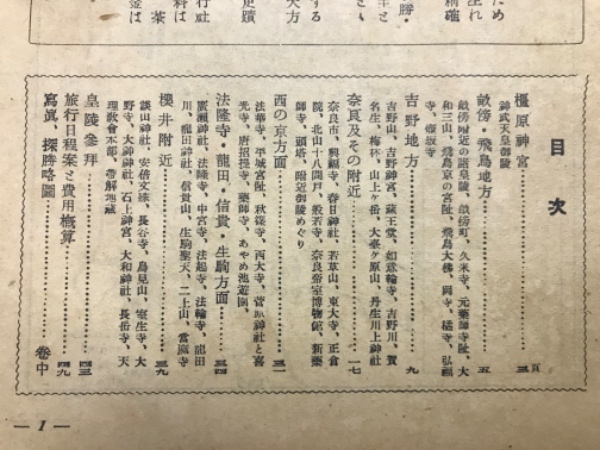 目次
橿原神宮……三頁
神武天皇御陵
畝傍・飛鳥地方……五
畝傍附近の諸皇陵、畝傍町、久米寺、元藥師寺趾、大
和三山、飛鳥京の宮趾、飛鳥大佛、岡寺、橘寺、弘福
寺、壺坂寺
吉野地方……九
吉野山、吉野神宮、藏王堂、如意輪寺、吉野川、賀
名生、梅林、山上ヶ岳、大臺ヶ原山、丹生川上神社
奈良及その附近……一七
奈良市、興福寺、春日神社、若草山、東大寺、正倉
院、北山十八間戸、般若寺、奈良帝室博物館、新藥
師寺、頭塔、附近御陵めぐり
西の京方面……三一
法華寺、平城宮趾、秋篠寺、西大寺、菅原神社と喜
光寺、唐招提寺、藥師寺、あやめ池遊園、
法隆寺・龍田・信貴・生駒方面……三四
廣瀨神社、法隆寺、中宮寺、法起寺、法輪寺、龍田
川、龍田神社、信貴山、生駒聖天、二上山、當麻寺
櫻井附近……三九
談山神社、安倍文殊、長谷寺、鳥見山、室生寺、大
野寺、大神神社、石上神宮、大和神社、長岳寺、天
理敎會本部、帶解地藏
皇陵參拜……四三
旅行日程案と費用槪算……四九
寫眞、探勝略圖……卷中
— 1 —